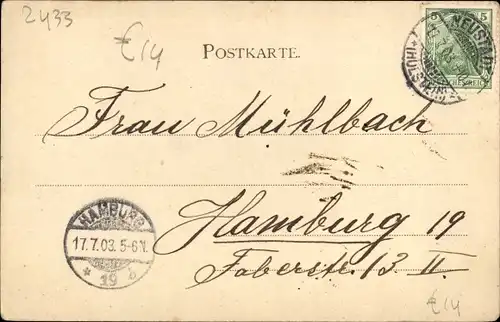 2433
€14
POSTKARTE.
5 5
NEUSTADT
* (HOLSTEIN) *
Frau Mühlbach
HAMBURG
17.7.03. 5-6N.
* 19 *
Hamburg 19
Faberstr. 13. II.
€14